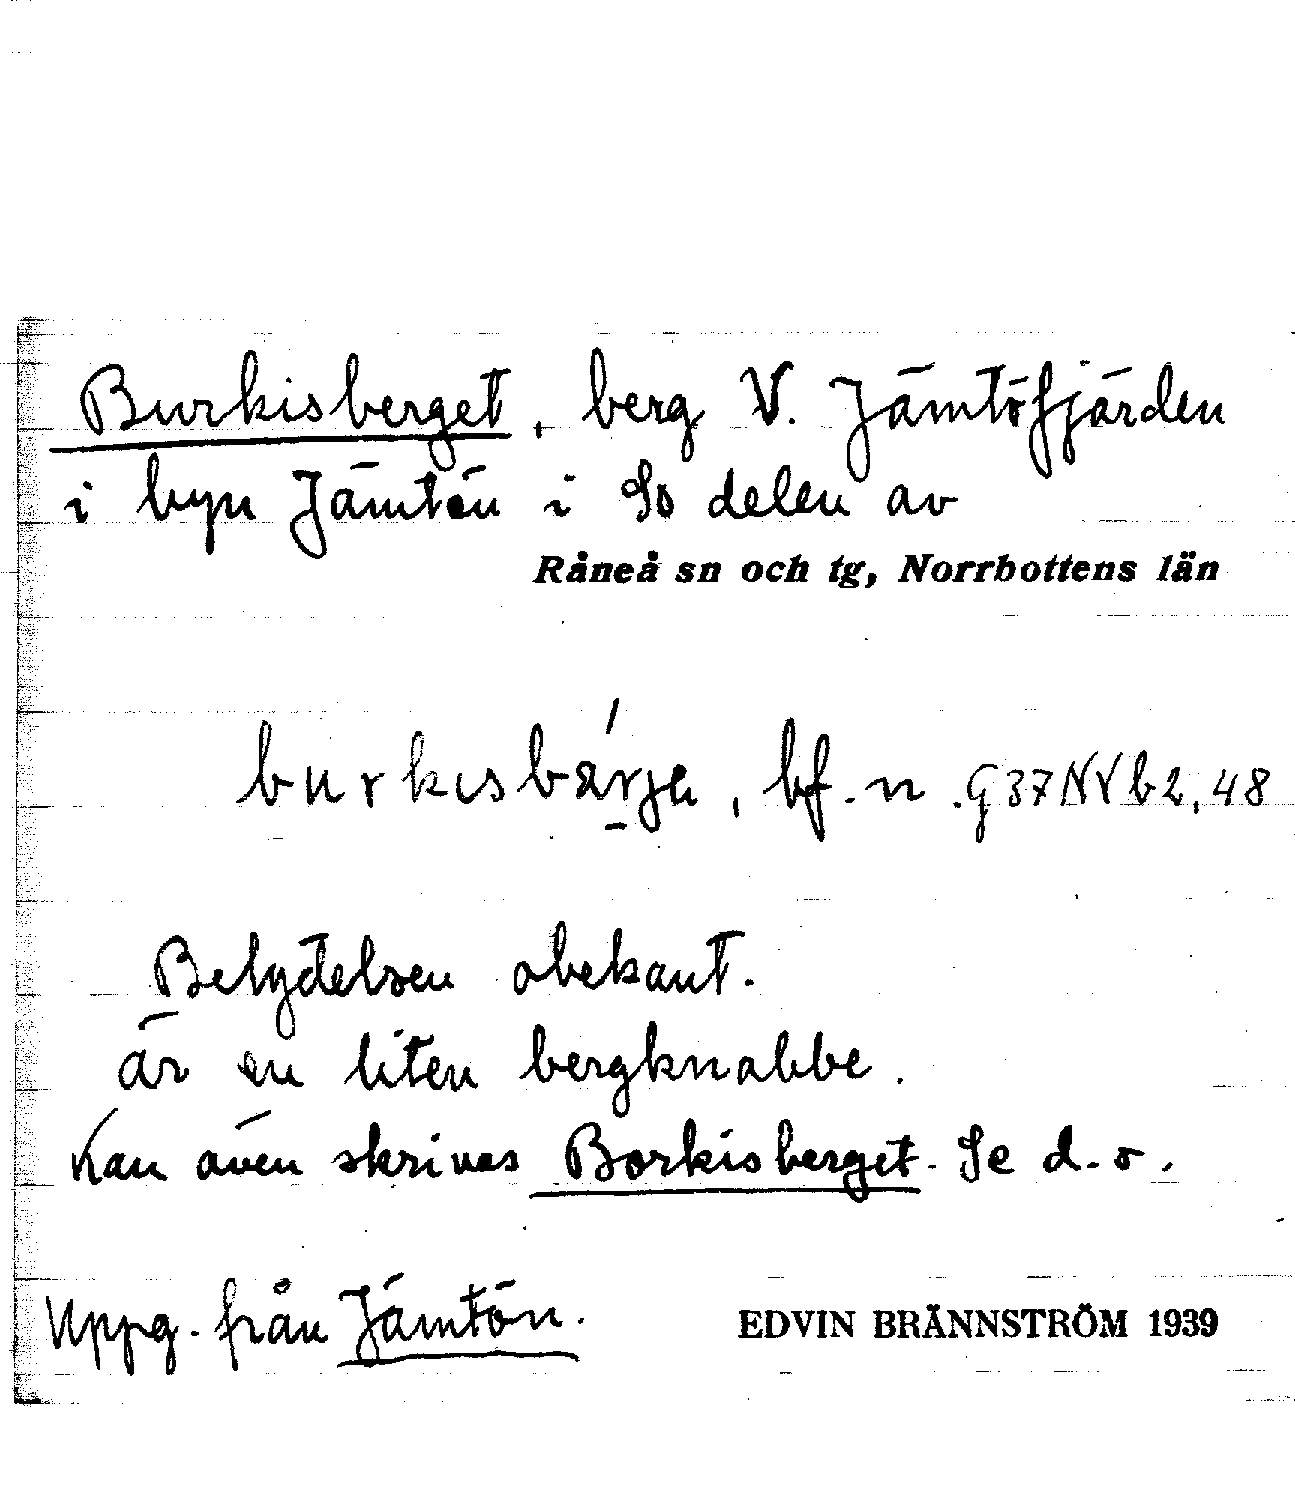 Burkisberget, berg V. Jämtöfjärden
i byn Jämtön i So delen av
Råneå sn och tg, Norrbottens län
burkısbä́rjə, bf. n. G37NVb2,48
Betydelsen obekant.
är en liten bergknabbe.
Kan även skrivas Borkisberget. Se d. o.
Uppg. från Jämtön.
EDVIN BRÄNNSTRÖM 1939